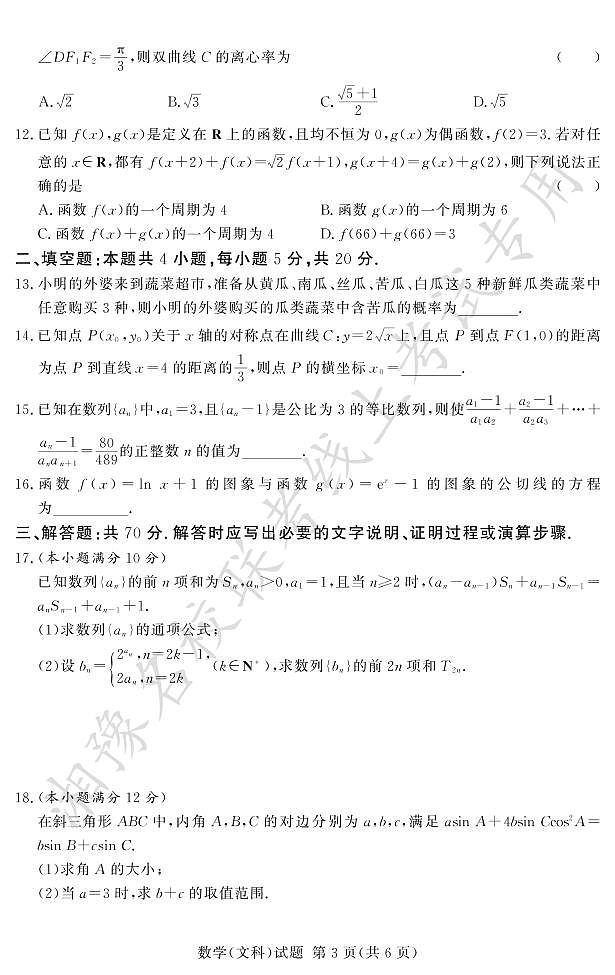 ∠DF₁F₂=π/3,则双曲线 C 的离心率为 (    )
A.√2 B.√3 C.(√5+1)/2 D.√5
12.已知 f(x),g(x)是定义在 R 上的函数,且均不恒为 0,g(x)为偶函数,f(2)=3.若对任
意的 x∈R,都有 f(x+2)+f(x)=√2 f(x+1),g(x+4)=g(x)+g(2),则下列说法正
确的是 (    )
A.函数 f(x)的一个周期为 4 B.函数 g(x)的一个周期为 6
C.函数 f(x)+g(x)的一个周期为 4 D.f(66)+g(66)=3
二、填空题:本题共 4 小题,每小题 5 分,共 20 分.
13.小明的外婆来到蔬菜超市,准备从黄瓜、南瓜、丝瓜、苦瓜、白瓜这 5 种新鲜瓜类蔬菜中
任意购买 3 种,则小明的外婆购买的瓜类蔬菜中含苦瓜的概率为________.
14.已知点 P(x₀,y₀)关于 x 轴的对称点在曲线 C:y=2√x上,且点 P 到点 F(1,0)的距离
为点 P 到直线 x=4 的距离的1/3,则点 P 的横坐标 x₀=________.
15.已知在数列{aₙ}中,a₁=3,且{aₙ-1}是公比为 3 的等比数列,则使(a₁-1)/(a₁a₂)+(a₂-1)/(a₂a₃)+⋯+
(aₙ-1)/(aₙaₙ₊₁)=80/489的正整数 n 的值为________.
16.函数 f(x)=ln x+1 的图象与函数 g(x)=eˣ-1 的图象的公切线的方程
为________.
三、解答题:共 70 分.解答时应写出必要的文字说明、证明过程或演算步骤.
17.(本小题满分 10 分)
已知数列{aₙ}的前 n 项和为 Sₙ,aₙ>0,a₁=1,且当 n≥2 时,(aₙ-aₙ₋₁)Sₙ+aₙ₋₁Sₙ₋₁=
aₙSₙ₋₁+aₙ₋₁+1.
(1)求数列{aₙ}的通项公式;
(2)设 bₙ={2^(aₙ),n=2k-1, 2aₙ,n=2k (k∈N*),求数列{bₙ}的前 2n 项和 T₂ₙ.
18.(本小题满分 12 分)
在斜三角形 ABC 中,内角 A,B,C 的对边分别为 a,b,c,满足 asin A+4bsin Ccos²A=
bsin B+csin C.
(1)求角 A 的大小;
(2)当 a=3 时,求 b+c 的取值范围.
数学(文科)试题 第 3 页(共 6 页)
湘豫名校联考线上考试专用